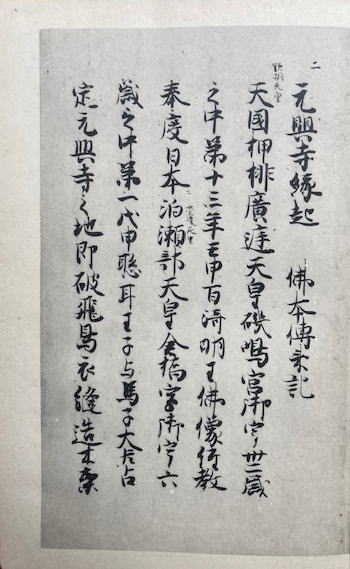 二
元興寺緣起　佛本傳來記
欽明天皇
天國押排廣庭天皇磯嶋宮御宇卅二歲
之中第十三年壬申百濟明王佛像經教
崇峻天皇
奉度日本泊瀨部天皇倉橋宮御宇六
歲之中第一戊申聡耳王子与馬子大臣占
定元興寺之地即破飛鳥衣縫造木葉